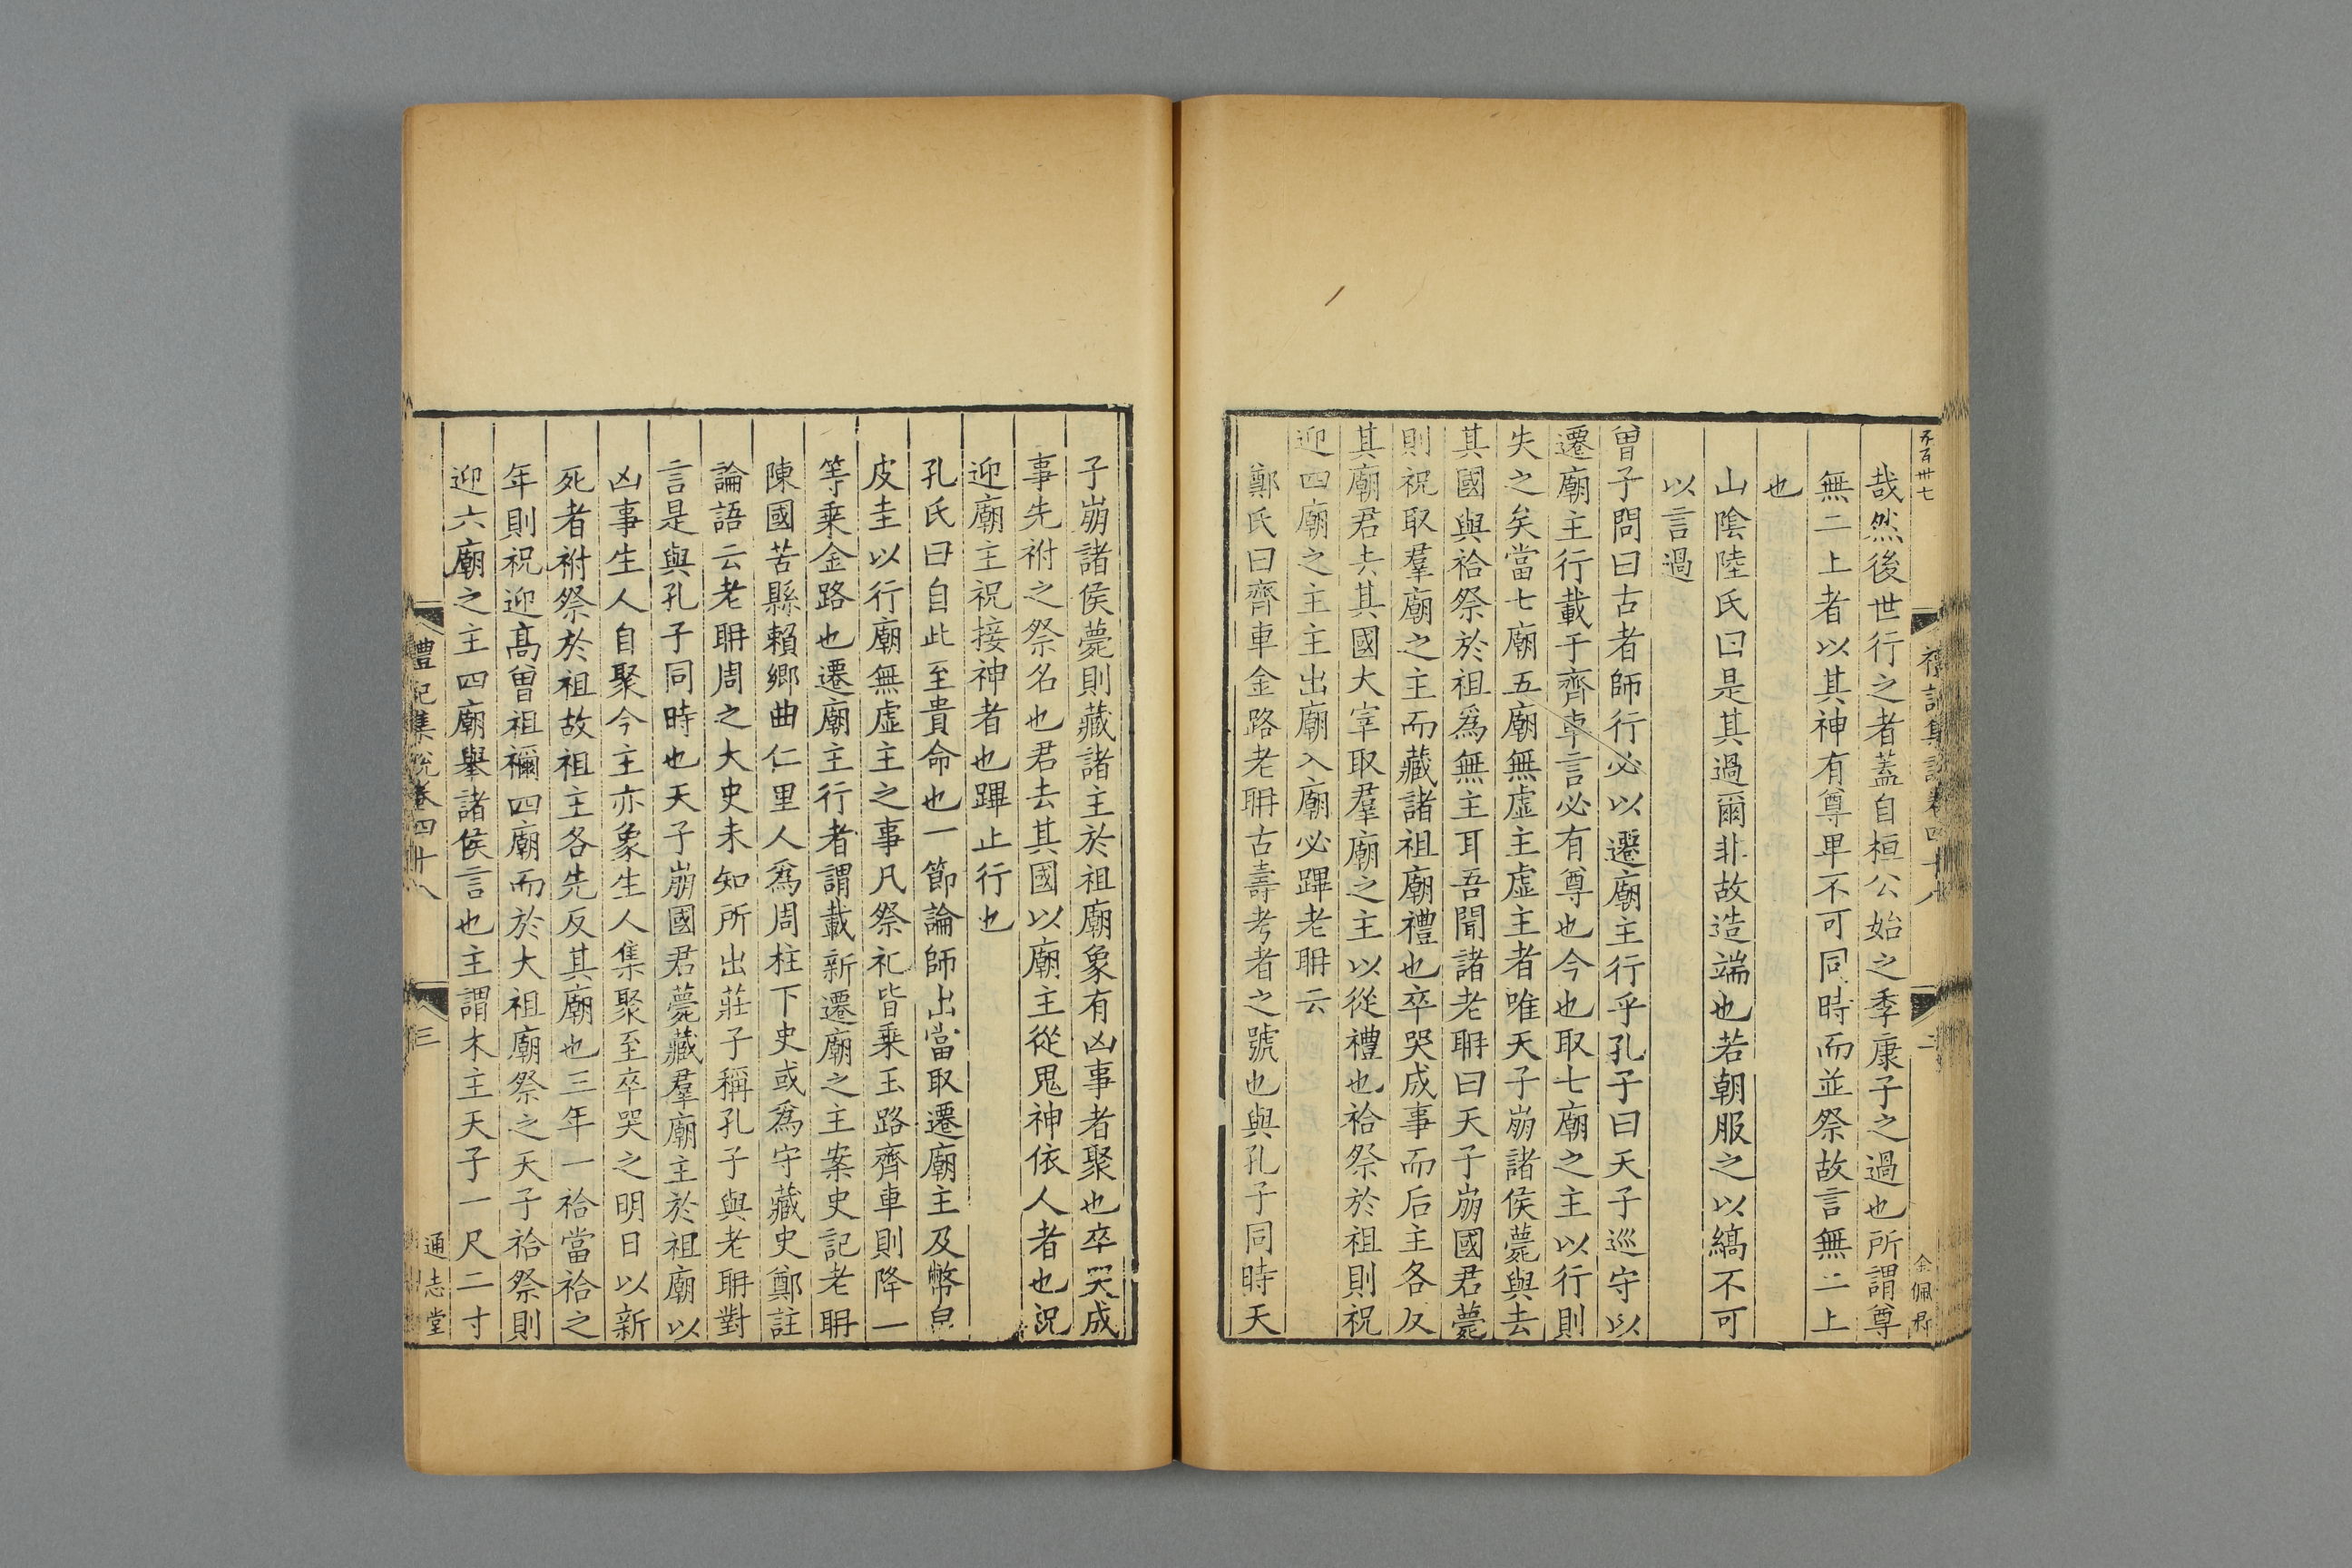 哉然後世行之者蓋自桓公始之季康子之過也所謂尊
無二上者以其神有尊卑不可同時而並祭故言無二上
也
山隂陸氏曰是其過爾非故造端也若朝服之以縞不可
以言過
曾子問曰古者師行必以遷廟主行乎孔子曰天子巡守以
遷廟主行載于齊車言必有尊也今也取七廟之主以行則
失之矣當七廟五廟無虚主虚主者唯天子崩諸侯薨與去
其國與祫祭於祖爲無主耳吾聞諸老耼曰天子崩國君薨
則祝取羣廟之主而藏諸祖廟禮也卒哭成事而后主各反
其廟君去其國大宰取羣廟之主以從禮也祫祭於祖則祝
迎四廟之主主出廟入廟必蹕老耼云
鄭氏曰齊車金路老耼古壽考者之號也與孔子同時天
金佩
子崩諸侯薨則藏諸主於祖廟象有凶事者聚也卒哭成
事先祔之祭名也君去其國以廟主從鬼神依人者也祝
迎廟主祝接神者也蹕止行也
孔氏曰自此至貴命也一節論師出當取遷廟主及幣帛
皮圭以行廟無虚主之事凡祭祀皆乗玉路齊車則降一
等乗金路也遷廟主行者謂載新遷廟之主案史記老耼
陳國苦縣賴鄉曲仁里人爲周柱下史或爲守藏史鄭註
論語云老耼周之大史未知所出莊子稱孔子與老耼對
言是與孔子同時也天子崩國君薨藏羣廟主於祖廟以
凶事生人自聚今主亦象生人集聚至卒哭之明日以新
死者祔祭於祖故祖主各先反其廟也三年一祫當祫之
年則祝迎髙曽祖禰四廟而於大祖廟祭之天子祫祭則
迎六廟之主四廟舉諸侯言也主謂木主天子一尺二寸
禮記集説卷四十八
三
通志堂